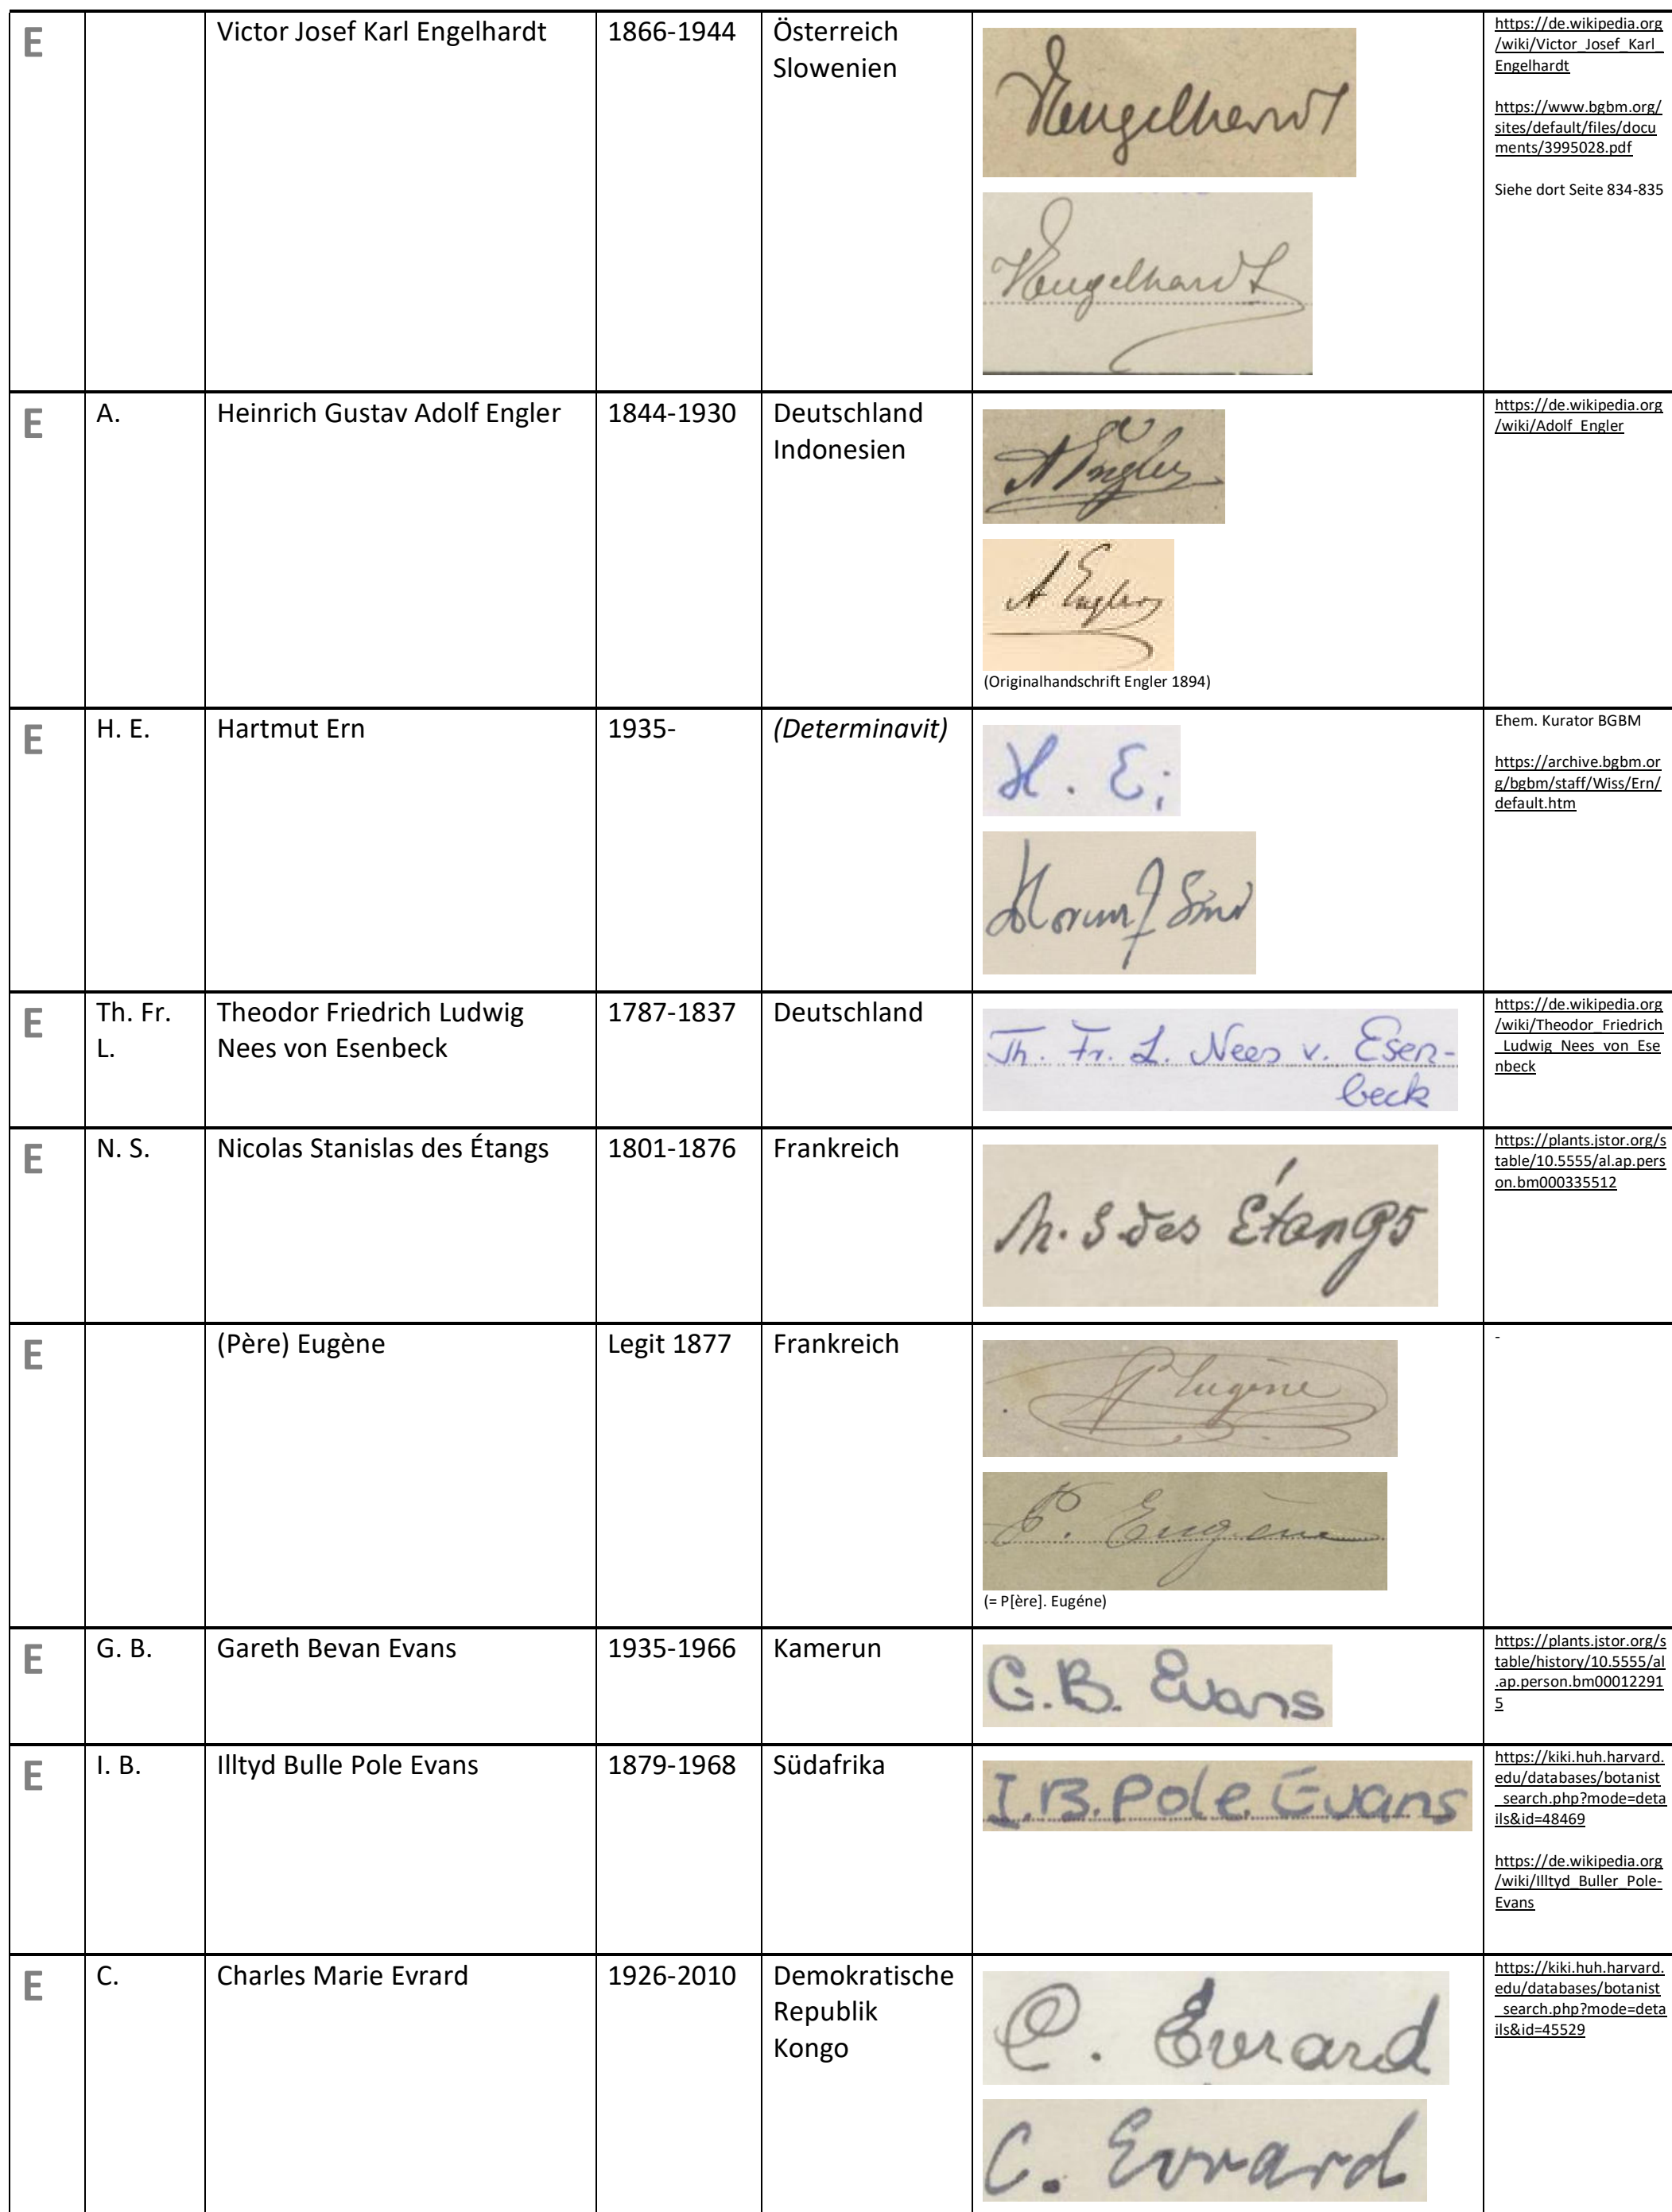 E
Victor Josef Karl Engelhardt
1866-1944
Österreich
Slowenien
VEngelhardt
VEngelhardt
https://de.wikipedia.org
/wiki/Victor_Josef_Karl_
Engelhardt
https://www.bgbm.org/
sites/default/files/docu
ments/3995028.pdf
Siehe dort Seite 834-835
E
A.
Heinrich Gustav Adolf Engler
1844-1930
Deutschland
Indonesien
A Engler
A Engler
(Originalhandschrift Engler 1894)
https://de.wikipedia.org
/wiki/Adolf_Engler
E
H. E.
Hartmut Ern
1935-
(Determinavit)
H. E;
Ehem. Kurator BGBM
https://archive.bgbm.or
g/bgbm/staff/Wiss/Ern/
default.htm
E
Th. Fr.
L.
Theodor Friedrich Ludwig
Nees von Esenbeck
1787-1837
Deutschland
Th. Fr. L. Nees v. Esen-
beck
https://de.wikipedia.org
/wiki/Theodor_Friedrich
_Ludwig_Nees_von_Ese
nbeck
E
N. S.
Nicolas Stanislas des Étangs
1801-1876
Frankreich
N. S. des Étangs
https://plants.jstor.org/s
table/10.5555/al.ap.pers
on.bm000335512
E
(Père) Eugène
Legit 1877
Frankreich
P Eugène
P. Eugène
(= P[ère]. Eugéne)
-
E
G. B.
Gareth Bevan Evans
1935-1966
Kamerun
G.B. Evans
https://plants.jstor.org/s
table/history/10.5555/al
.ap.person.bm00012291
5
E
I. B.
Illtyd Bulle Pole Evans
1879-1968
Südafrika
I.B. Pole Evans
https://kiki.huh.harvard.
edu/databases/botanist
_search.php?mode=deta
ils&id=48469
https://de.wikipedia.org
/wiki/Illtyd_Buller_Pole-
Evans
E
C.
Charles Marie Evrard
1926-2010
Demokratische
Republik
Kongo
C. Evrard
C. Evrard
https://kiki.huh.harvard.
edu/databases/botanist
_search.php?mode=deta
ils&id=45529